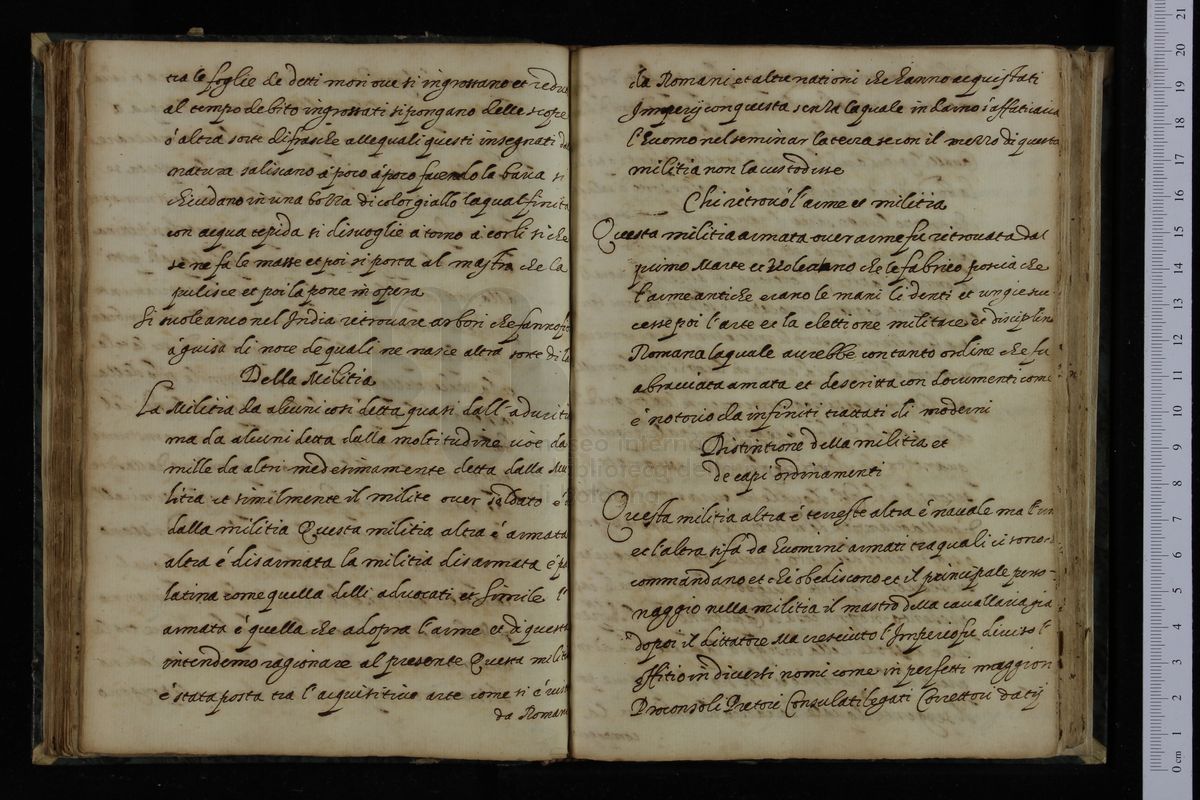 tra le foglie de detti mori oue si ingrossano et
al tempo debito ingrossati si pongano delle scope
ó altra sorte di frasche alle quali questi insegnati
natura saliscano á poco á poco facendo la baua si
chiudano in una bozza di color giallo la qual finita
con acqua tepida si disuoglie atorno á corli si che
se ne fa le masse et poi si porta al mastro che la
pulisce et poi la pone in opera
Si suole anco nel India retrouare arbori che fanno
á guisa di noce de quali ne nasce altra sorte di
Della Militia
La Militia da alcuni cosi detta quasi dall'
ma da alcuni detta dalla moltitudine cioe da
mille da altri medesimamente detta dalla
litia et similmente il milite ouer soldato é
dalla militia Questa militia altra é armata
altra é disarmata la militia disarmata é
latina come quella delli aduocati et simile l'
armata é quella che adopra l'arme et di questa
intendemo ragionare al presente Questa
é stata posta tra l'acquisitiua arte come si é
da Romani
da Romani et altre nationi che hanno acquistati
Imperij con questa senza la quale indarno s'affaticaua
l'huomo nel seminar la terra se con il mezzo di questa
militia non la custodisse
Chi retrouó l'arme et militia
Questa militia armata ouer arme fu retrouata dal
primo Marte et Volcano che le fabricó poscia che
l'arme antiche erano le mani li denti et ungie
cesse poi l'arte et la elettione militare et disciplina
Romana la quale aurebbe con tanto ordine che fu
abracciata amata et descritta con documenti come
é notorio da infiniti trattati di moderni
Distintione della militia et
de capi ordinamenti
Questa militia altra é terrestre altra é nauale ma l'un
et l'altra si fa da huomini armati tra quali ci sono
commandano et chi obediscono et il principale perso-
naggio nella militia il mastro della cauallaria gia
dopoi il dittatore Ma cresciuto l'Imperio fu diuiso l'
offitio in diuersi nomi come in perfetti maggiori
Proconsoli Pretori Consulati legati Correttori